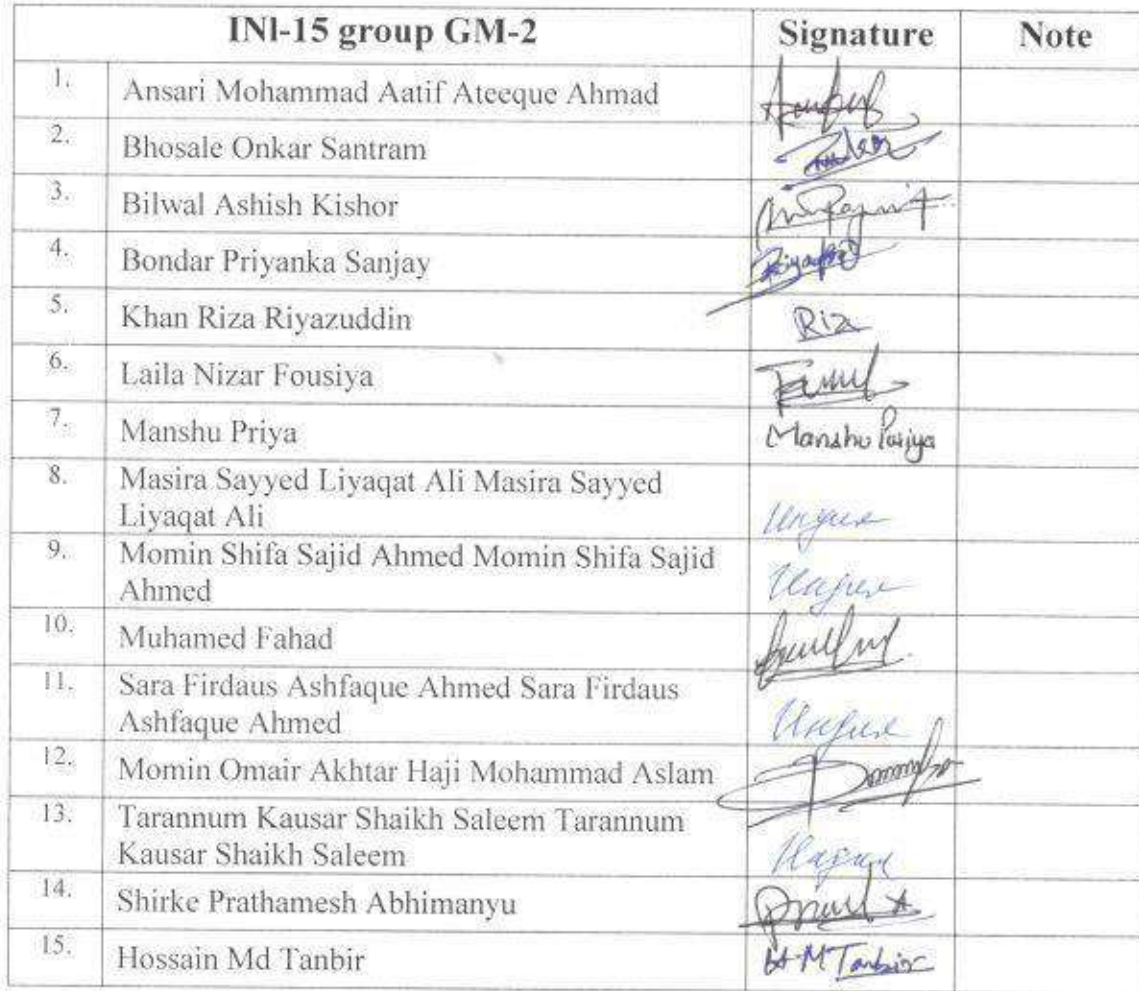 INI-15 group GM-2 Signature Note
1. Ansari Mohammad Aatif Ateeque Ahmad
2. Bhosale Onkar Santram
3. Bilwal Ashish Kishor
4. Bondar Priyanka Sanjay
5. Khan Riza Riyazuddin Riza
6. Laila Nizar Fousiya
7. Manshu Priya Manshu Pariya
8. Masira Sayyed Liyaqat Ali Masira Sayyed
Liyaqat Ali
9. Momin Shifa Sajid Ahmed Momin Shifa Sajid
Ahmed
10. Muhamed Fahad
11. Sara Firdaus Ashfaque Ahmed Sara Firdaus
Ashfaque Ahmed
12. Momin Omair Akhtar Haji Mohammad Aslam
13. Tarannum Kausar Shaikh Saleem Tarannum
Kausar Shaikh Saleem
14. Shirke Prathamesh Abhimanyu
15. Hossain Md Tanbir H·M Tanbir